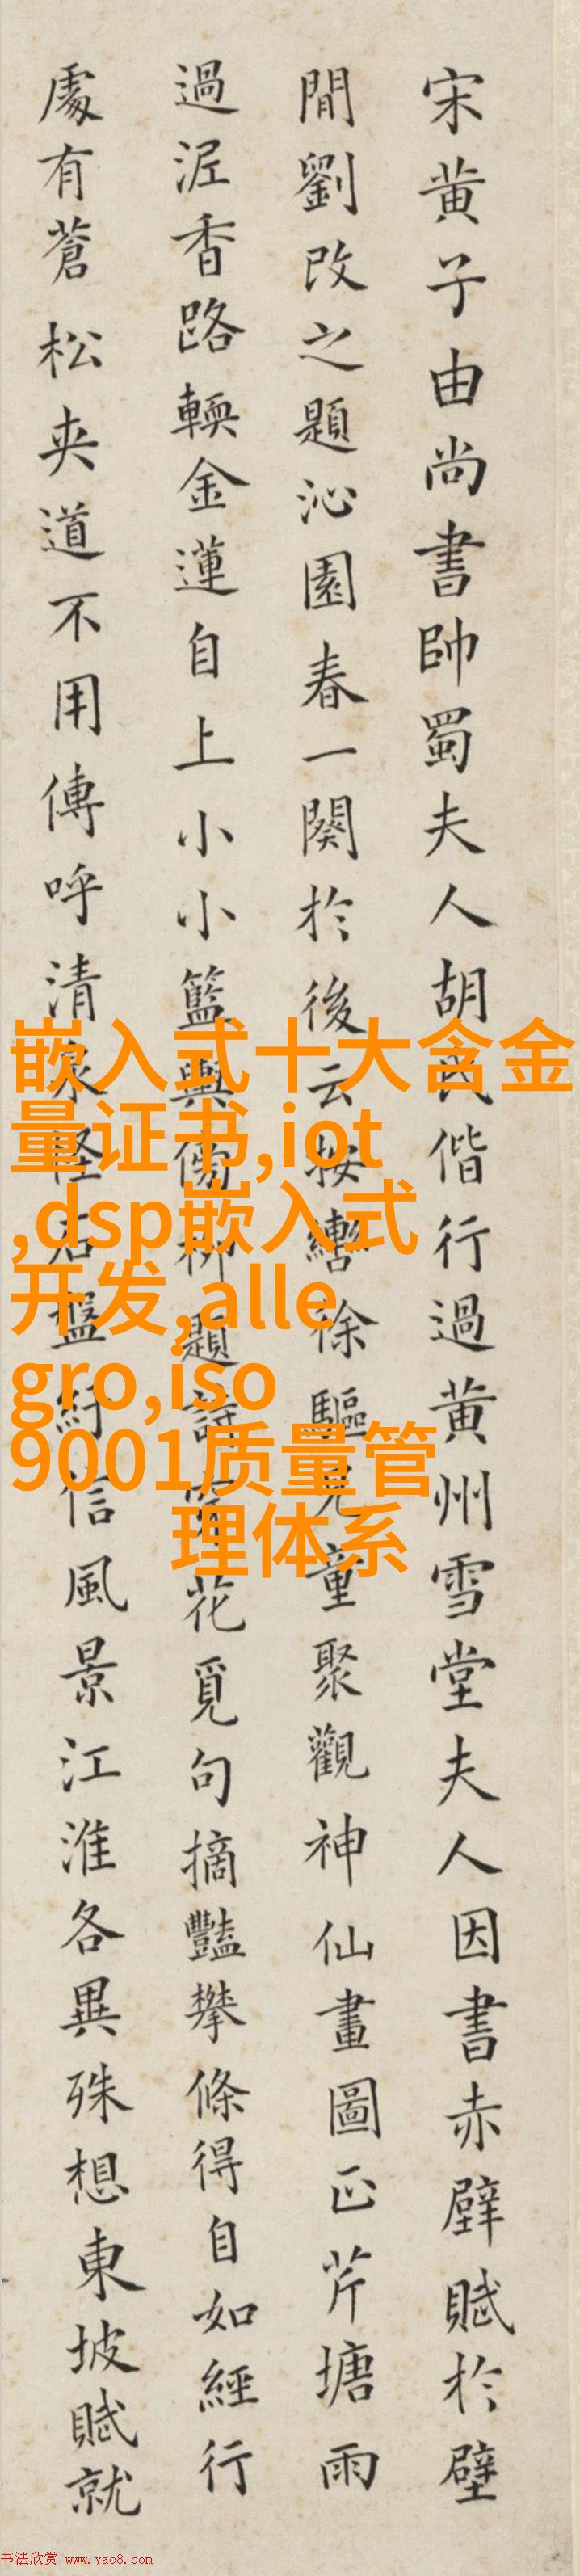 宋黄子由尚書帥蜀夫人胡氏偕行過黄州雪堂夫人因書赤壁賦於壁
間劉改之題沁園春一闋於後云按轡徐驅兒童聚觀神仙畫圖正芹塘雨
過泥香路輭金蓮自上小小籃輿傍柳題詩穿花覓句摘豔攀條得自如經行
處有蒼松夾道不用傳呼清泉怪石盤紆信風景江淮各異殊想東坡賦就
嵌入式十大含金
量证书,iot
,dsp嵌入式
开发,alle
gro,iso
9001质量管
理体系
书法欣赏 www.yac8.com